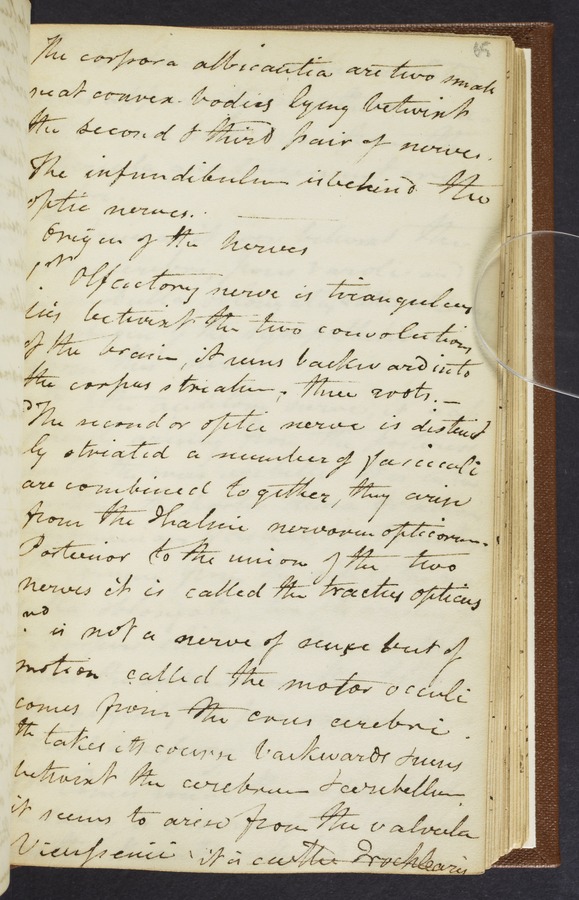 65
The corpora albicantia are two small
neat convex bodies lying betwixt
the second & third pair of nerves.
The infundibulum is behind the
optic nerves.
Origin of the nerves
1st Olfactory nerve is triangular
lies betwixt the two convolutions
of the brain, it runs backward into
the corpus striatum, three roots. —
The second or optic nerve is distinct
ly striated a number of fasciculi
are combined together, they arise
from the thalmi nervorum opticorum.
Posterior to the union of the two
nerves it is called the tractus opticus
is not a nerve of sense but of
motion called the motor occuli
comes from the crus cerebri.
takes its course backwards & runs
betwixt the cerebrum & cerebellum
it seems to arise from the valvula
Vieussenii it is the Trochlearis